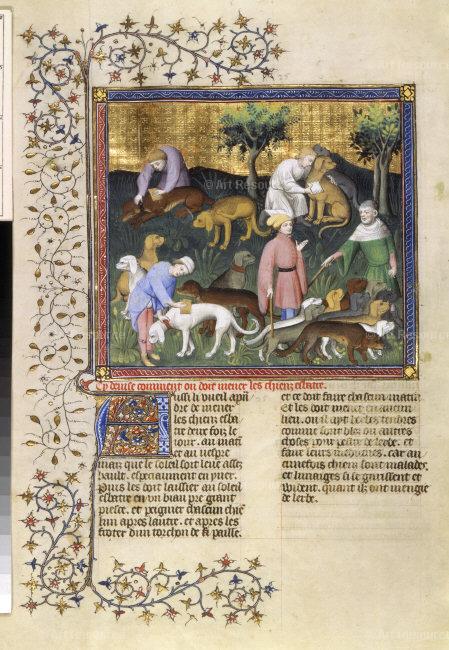 Cy deuise comment on doit mener les chiens esbatre.
Aussi vueil apren
dre de mener
les chiens esba
tre deux fois le
iour. au matin
et au vespre
mais que le soleil soit leue assez
hault. especiaument en yuer.
Puis les doit laissier au soleil
esbatre en un biau pre grant
piesce. et peigner chascun chie
lun apres lautre. et apres les
froter dun torchon de paille.
et ce doit faire chascun matin
et les doit mener en aucun
lieu. ou il ayt herbes tendres
comme sont bles ou autres
choses pour paitre de lerbe. et
faire leurs medecines. car au
cunefois chiens sont malades.
et lunages si se guerissent et
wident. quant ilz ont mengie
de lerbe.
© Art Resource
© Art Resource